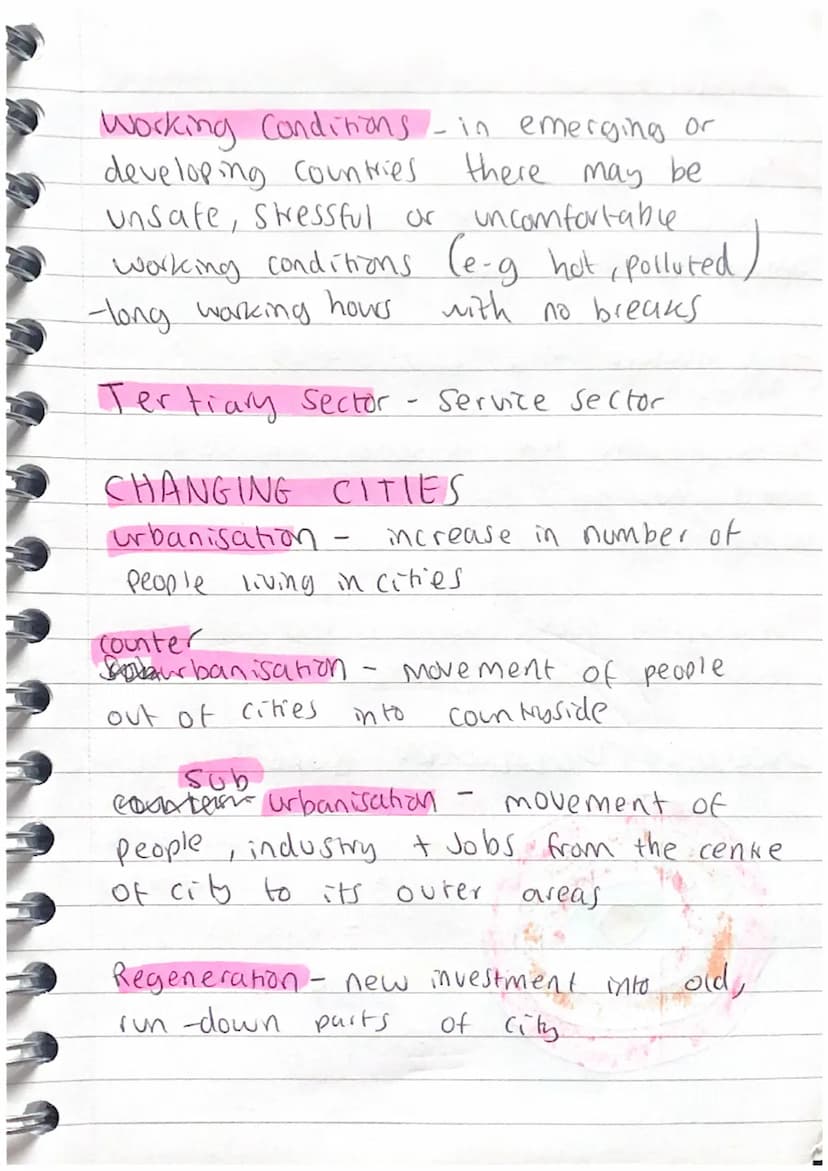 Working Conditions - in emerging or
developing countries there may be
unsafe, stressful or uncomfortable
working conditions (e-g hot, polluted)
-long working hours with no breaks
Tertiary Sector - Service Sector
CHANGING CITIES
urbanisation - increase in number of
people living in cities
counter
urbanisation - movement of people
out of cities into countryside
Sub
counter urbanisation - movement of
people, industry + Jobs from the centre
of city to its outer areas
Regeneration - new investment into old,
run-down parts of city